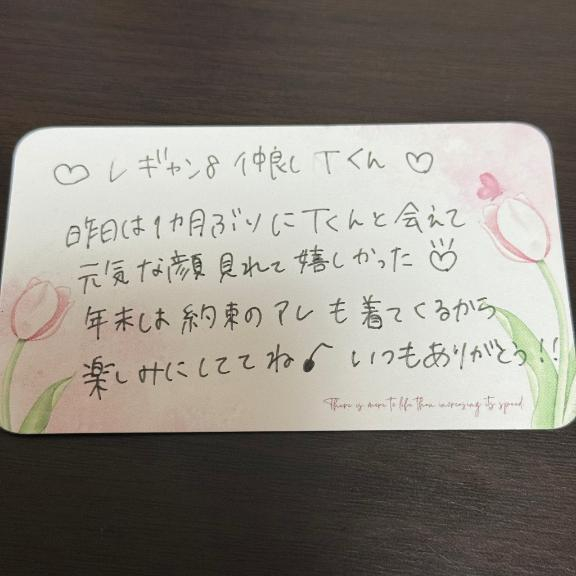 ♡ レギャン8 仲良し Tくん ♡
昨日は1カ月ぶりにTくんと会えて
元気な顔見れて嬉しかった♡
年末は約束のアレも着てくるから
楽しみにしててね♪ いつもありがとう!!
There is more to life than increasing its speed